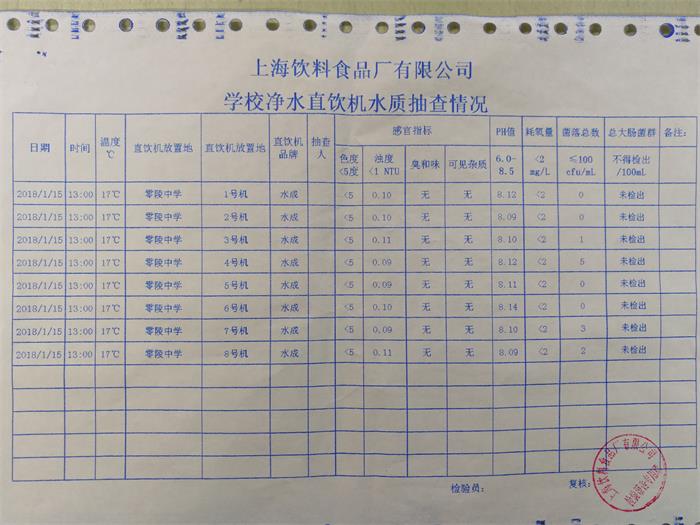 上海饮料食品厂有限公司
学校净水直饮机水质抽查情况
日期 时间 温度℃ 直饮机放置地 直饮机放置地 直饮机品牌 抽查人 感官指标 PH值 耗氧量 菌落总数 总大肠菌群 备注:
色度<5度 浊度<1 NTU 臭和味 可见杂质 6.0-8.5 <2 mg/L ≤100 cfu/mL 不得检出/100mL
2018/1/15 13:00 17℃ 零陵中学 1号机 水成 <5 0.10 无 无 8.12 <2 0 未检出
2018/1/15 13:00 17℃ 零陵中学 2号机 水成 <5 0.10 无 无 8.09 <2 0 未检出
2018/1/15 13:00 17℃ 零陵中学 3号机 水成 <5 0.11 无 无 8.10 <2 1 未检出
2018/1/15 13:00 17℃ 零陵中学 4号机 水成 <5 0.09 无 无 8.12 <2 5 未检出
2018/1/15 13:00 17℃ 零陵中学 5号机 水成 <5 0.09 无 无 8.11 <2 0 未检出
2018/1/15 13:00 17℃ 零陵中学 6号机 水成 <5 0.10 无 无 8.14 <2 0 未检出
2018/1/15 13:00 17℃ 零陵中学 7号机 水成 <5 0.09 无 无 8.10 <2 3 未检出
2018/1/15 13:00 17℃ 零陵中学 8号机 水成 <5 0.11 无 无 8.09 <2 2 未检出
检验员: 复核:
上海饮料食品厂有限公司